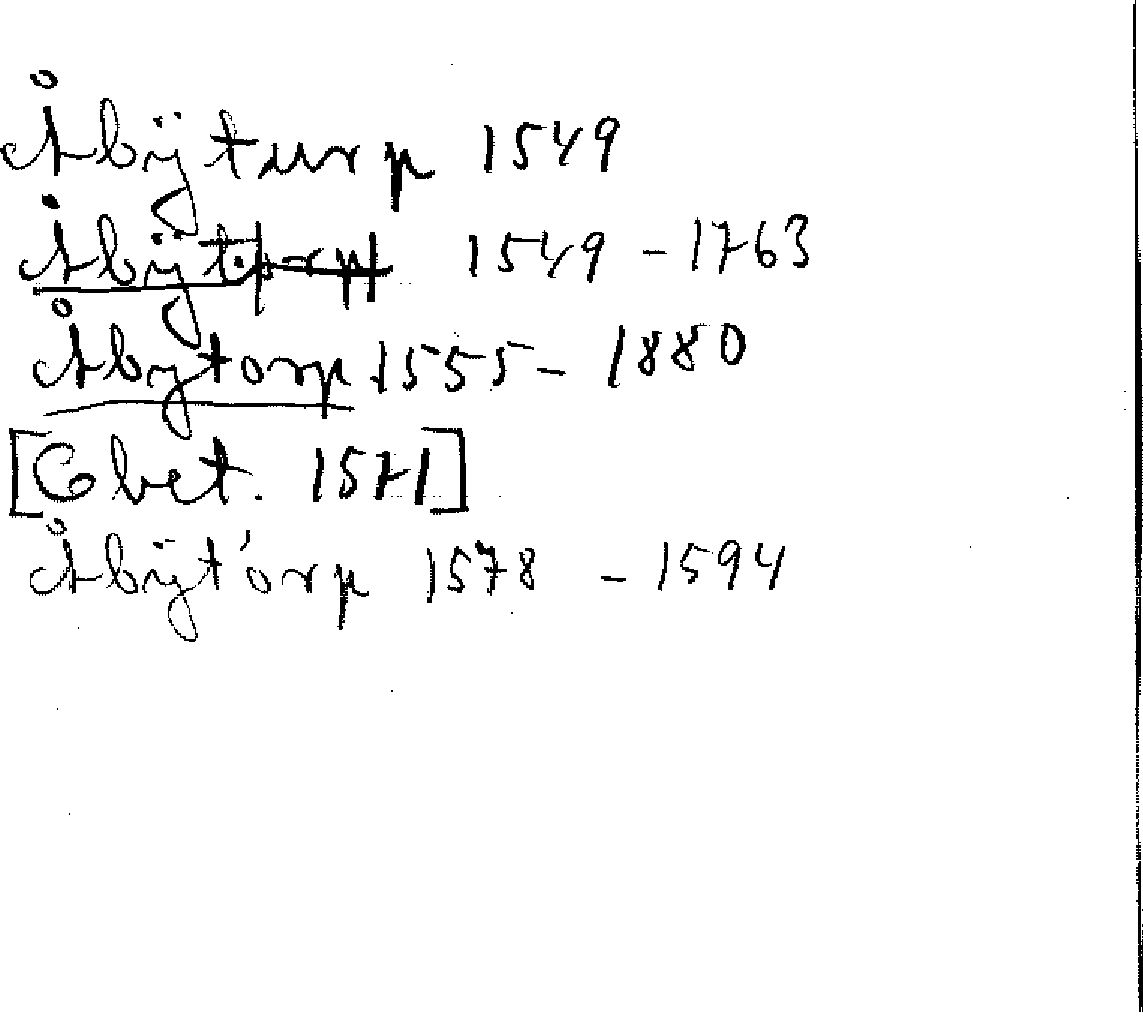 Åbÿturp 1549
Åbÿtorp 1549 - 1763
Åbytorp 1555 - 1880
[Obet. 1571]
Åbÿtorp 1578 - 1594